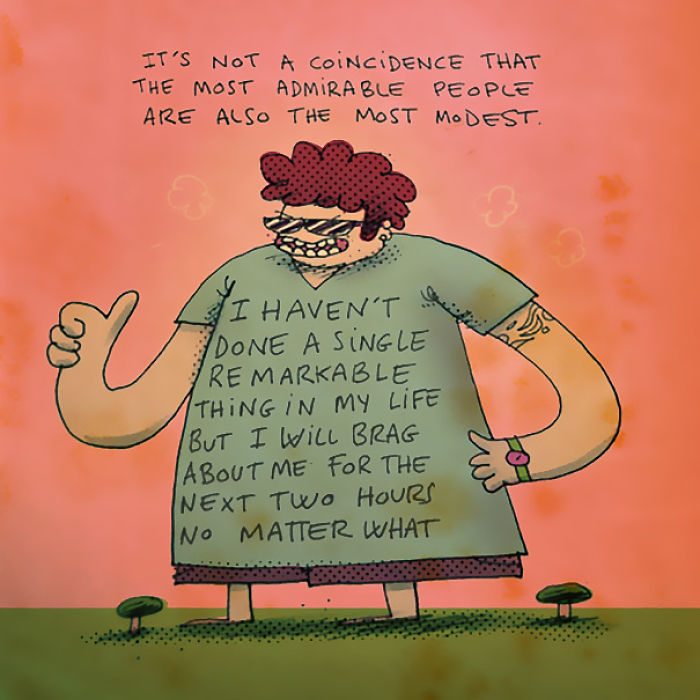 IT'S NOT A COINCIDENCE THAT
THE MOST ADMIRABLE PEOPLE
ARE ALSO THE MOST MODEST.
I HAVEN'T
DONE A SINGLE
REMARKABLE
THING IN MY LIFE
BUT I WILL BRAG
ABOUT ME FOR THE
NEXT TWO HOURS
NO MATTER WHAT